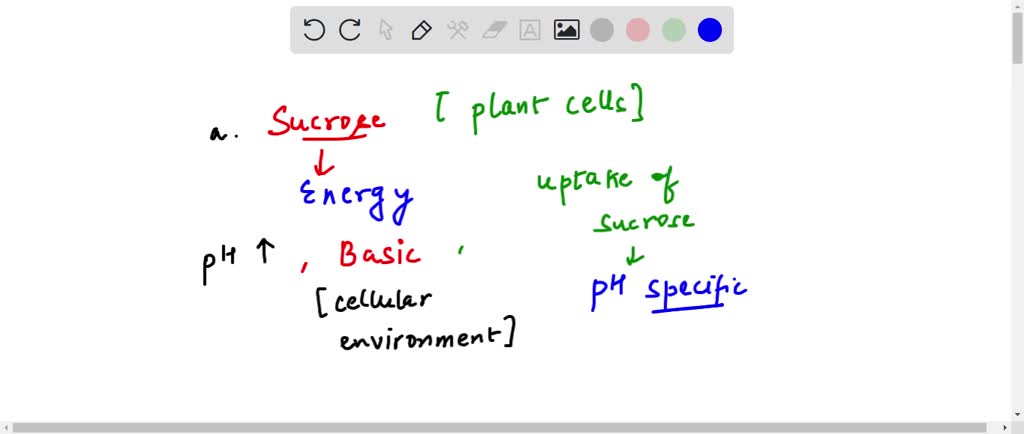 a. Sucrose [ plant cells ]
↓
Energy
uptake of
sucrose
↓
pH specific
pH ↑ , Basic ,
[ cellular
environment ]